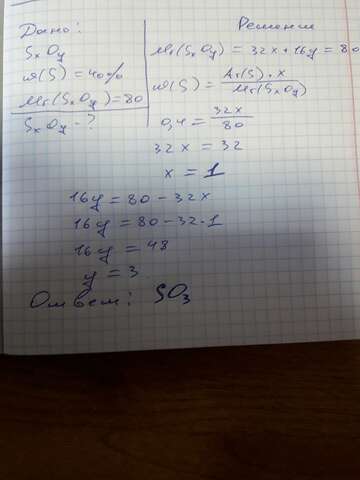 Дано:
SxOy
ω(S) = 40%
Mr(SxOy) = 80
SxOy - ?
Решение
Mr(SxOy) = 32x + 16y = 80
ω(S) = Ar(S) · x / Mr(SxOy)
0,4 = 32x / 80
32x = 32
x = 1
16y = 80 - 32x
16y = 80 - 32·1
16y = 48
y = 3
Ответ: SO3